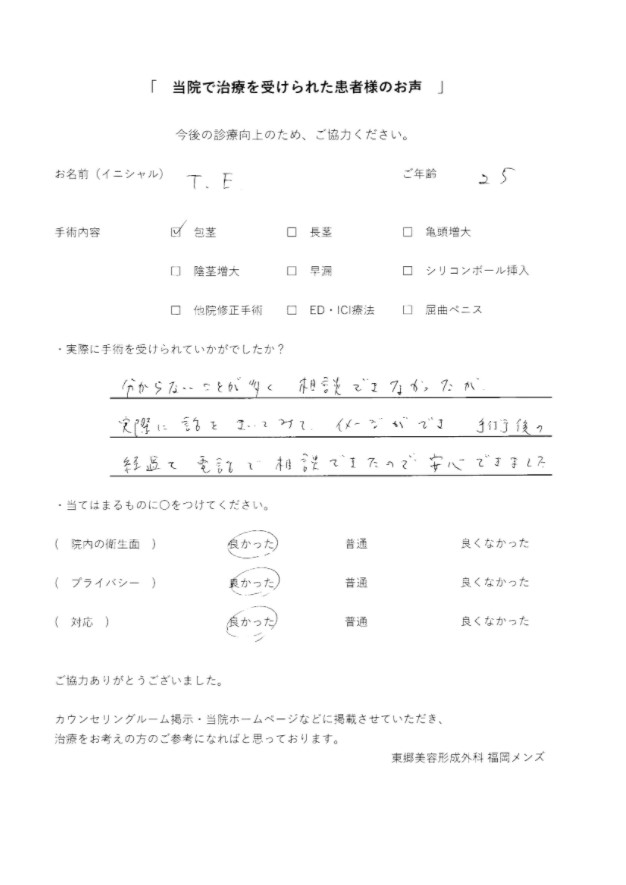 「 当院で治療を受けられた患者様のお声 」
今後の診療向上のため、ご協力ください。
お名前（イニシャル） T. E. ご年齢 25
手術内容 ☑ 包茎 □ 長茎 □ 亀頭増大
□ 陰茎増大 □ 早漏 □ シリコンボール挿入
□ 他院修正手術 □ ED・ICI療法 □ 屈曲ペニス
・実際に手術を受けられていかがでしたか？
分からないことが多く 相談できなかったが
実際に話をきいてみて、イメージができ 手術後の
経過も 電話で相談できたので安心できました
・当てはまるものに○をつけてください。
( 院内の衛生面 ) 良かった 普通 良くなかった
( プライバシー ) 良かった 普通 良くなかった
( 対応 ) 良かった 普通 良くなかった
ご協力ありがとうございました。
カウンセリングルーム掲示・当院ホームページなどに掲載させていただき、
治療をお考えの方のご参考になればと思っております。
東郷美容形成外科 福岡メンズ